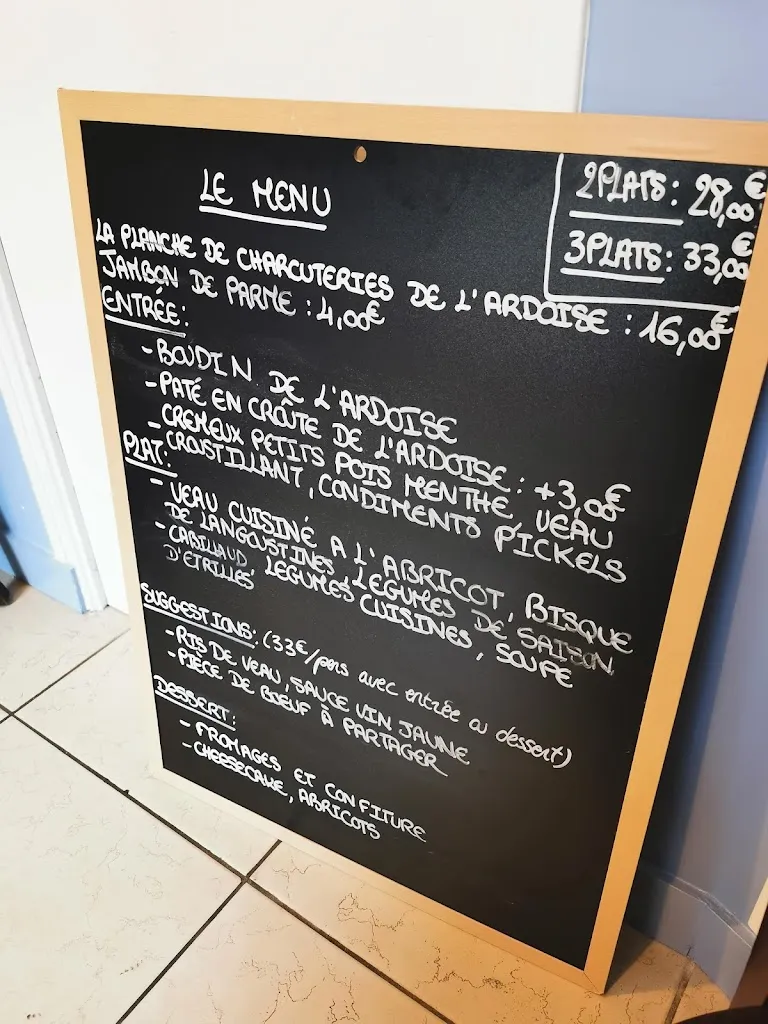 LE MENU
2PLATS: 28,00€
3PLATS: 33,00€
LA PLANCHE DE CHARCUTERIES DE L'ARDOISE : 16,00€
JAMBON DE PARME : 4,00€
ENTRÉE:
- BOUDIN DE L'ARDOISE
- PATÉ EN CROÛTE DE L'ARDOISE: +3,00€
- CREMEUX PETITS POIS MENTHE, VEAU
CROUSTILLANT, CONDIMENTS PICKELS
PLAT:
- VEAU CUISINÉ A L'ABRICOT, BISQUE
DE LANGOUSTINES, LEGUMES DE SAISON
- CABILLAUD, LEGUMES CUISINES, SOUPE
D'ETRILLES
SUGGESTIONS: (33€/pers avec entrée ou dessert)
- RIS DE VEAU, SAUCE VIN JAUNE
- PIÈCE DE BŒUF À PARTAGER
DESSERT:
- FROMAGES ET CONFITURE
- CHEESECAKE, ABRICOTS